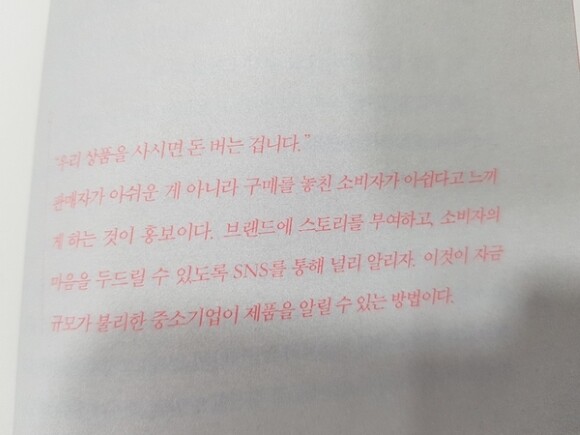 “우리 상품을 사시면 돈 버는 겁니다.”
판매자가 아쉬운 게 아니라 구매를 놓친 소비자가 아쉽다고 느끼
게 하는 것이 홍보이다. 브랜드에 스토리를 부여하고, 소비자의
마음을 두드릴 수 있도록 SNS를 통해 널리 알리자. 이것이 자금
규모가 불리한 중소기업이 제품을 알릴 수 있는 방법이다.